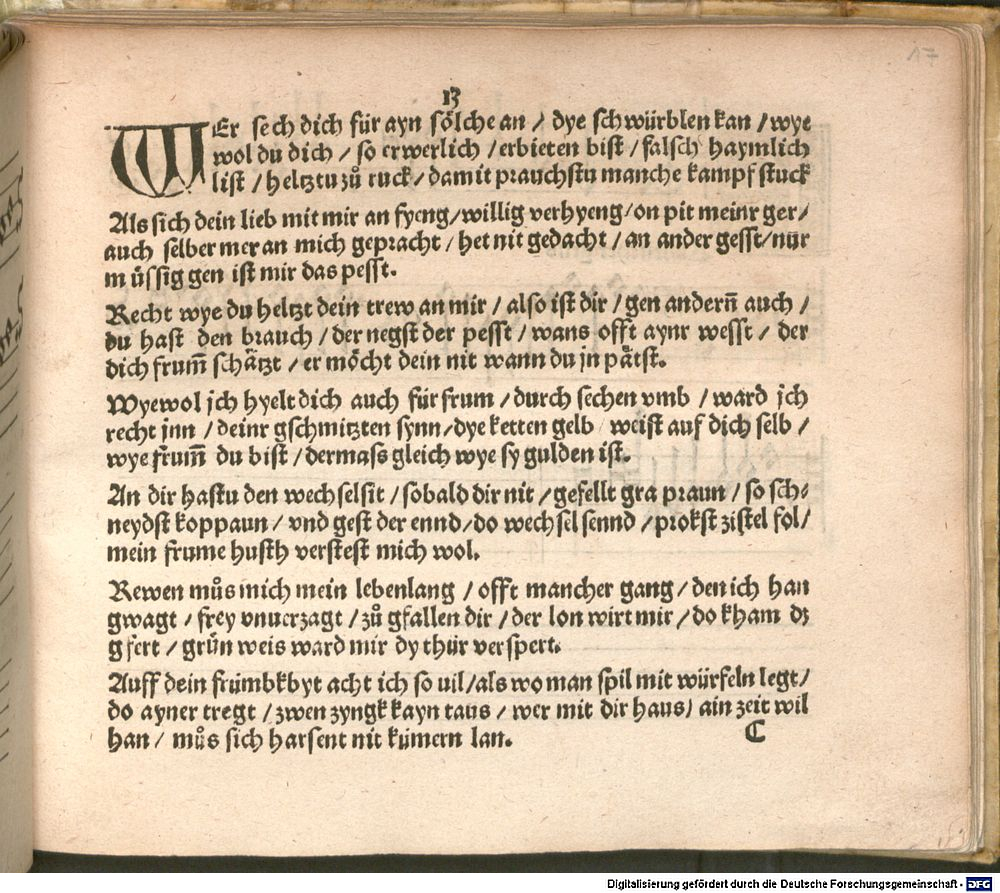 17
13
WEr sech dich für ayn sölche an / dye schwürblen kan / wye
wol du dich / so erwerlich / erbieten bist / falsch haymlich
list / heltztu zů ruck / damit prauchstu manche kampf stuck
Als sich dein lieb mit mir an fyeng / willig verhyeng / on pit meinr ger /
auch selber mer an mich gepracht / het nit gedacht / an ander gesst / nür
müssig gen ist mir das pesst.
Recht wye du heltzt dein trew an mir / also ist dir / gen andern̄ auch /
du hast den brauch / der negst der pesst / wans offt aynr wesst / der
dich frum̄ schätzt / er möcht dein nit wann du jn pätst.
Wyewol jch hyelt dich auch für frum / durch sechen vmb / ward jch
recht jnn / deinr gschmitzten synn / dye ketten gelb / weist auf dich selb /
wye frum̄ du bist / dermass gleich wye sy gulden ist.
An dir hastu den wechselsit / sobald dir nit / gefellt gra praun / so sch⸗
neydst koppaun / vnd gest der ennd / do wechsel sennd / prokst zistel fol /
mein frume husth verstest mich wol.
Rewen můs mich mein lebenlang / offt mancher gang / den ich han
gwagt / frey vnuerzagt / zů gfallen dir / der lon wirt mir / do kham dz
gfert / grün weis ward mir dy thür verspert.
Auff dein frümbkbyt acht ich so uil / als wo man spil mit würfeln legt /
do ayner tregt / zwen zyngk kayn taus / wer mit dir haus / ain zeit wil
han / můs sich harsent nit kümern lan.
C
Digitalisierung gefördert durch die Deutsche Forschungsgemeinschaft - DFG